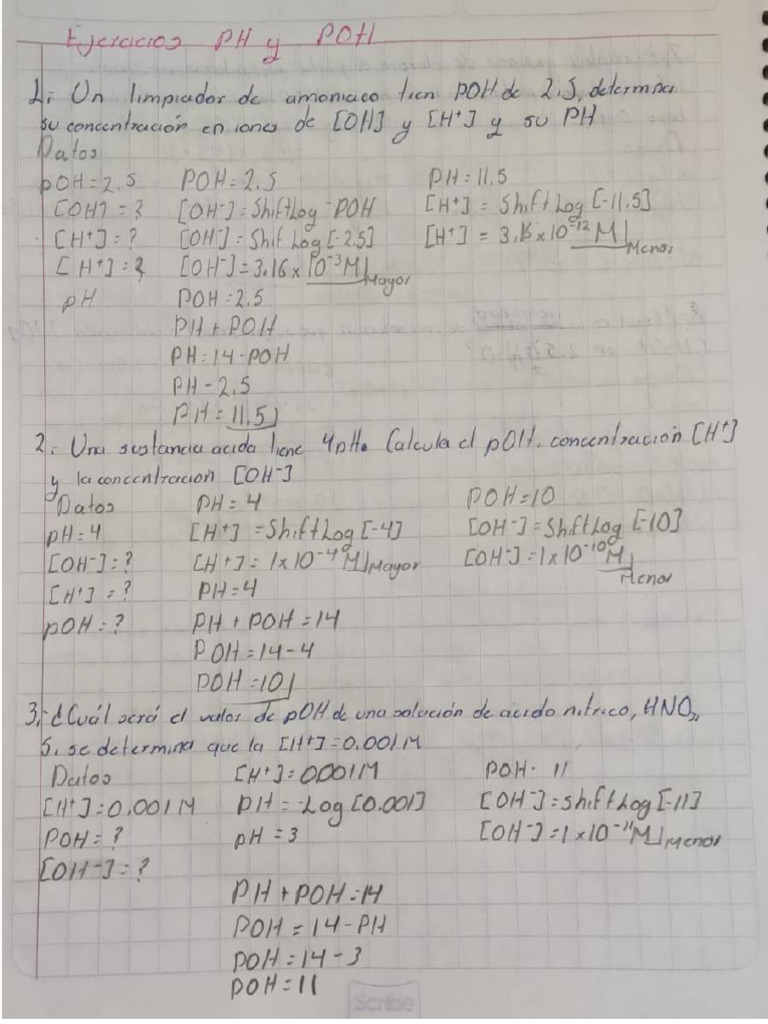 Ejercicios PH y POH
1: Un limpiador de amoniaco tien POH de 2.5, determina
su concentración en iones de [OH] y [H⁺] y su PH
Datos
pOH=2.5 POH=2.5 PH=11.5
[OH]=? [OH⁻]=ShiftLog -POH [H⁺]=Shift Log [-11.5]
[H⁺]:? [OH⁻]=Shif Log [-2.5] [H⁺]=3.16x10⁻¹² M Menor
[H⁺]=? [OH⁻]=3.16x10⁻³M Mayor
pH POH=2.5
PH+POH
PH=14-POH
PH-2.5
PH=11.5
2: Una sustancia acida tiene 4pH. Calcula el pOH, concentracion [H⁺]
y la concentracion [OH⁻]
Datos PH=4 POH=10
pH=4 [H⁺]=ShiftLog [-4] [OH⁻]=ShiftLog [-10]
[OH⁻]:? [H+]=1x10⁻⁴M Mayor [OH⁻]=1x10⁻¹⁰M Menor
[H⁺]=? PH=4
pOH=? PH+POH=14
POH=14-4
POH=10
3.-¿Cuál será el valor de pOH de una solución de ácido nítrico, HNO₃,
Si se determina que la [H+]=0.001M
Datos [H+]:0001M POH- 11
[H+]=0.001M pH=-Log [0.001] [OH⁻]=shiftLog [-11]
POH=? pH=3 [OH⁻]=1x10⁻¹¹M Menor
[OH⁻]=?
PH+POH=14
POH=14-PH
POH=14-3
POH=11
Scribe